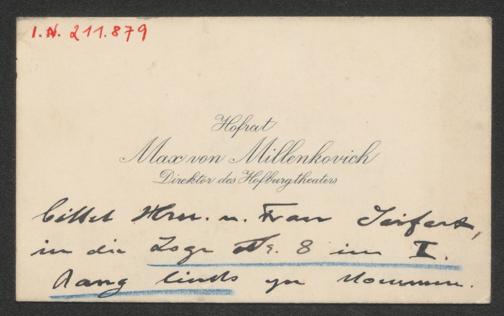 I.N. 211.879
Hofrat
Max von Millenkovich
Direktor des Hofburgtheaters
bittet Hrn. u. Frau Seifert,
in die Loge No. 8 im I.
Rang links zu kommen.